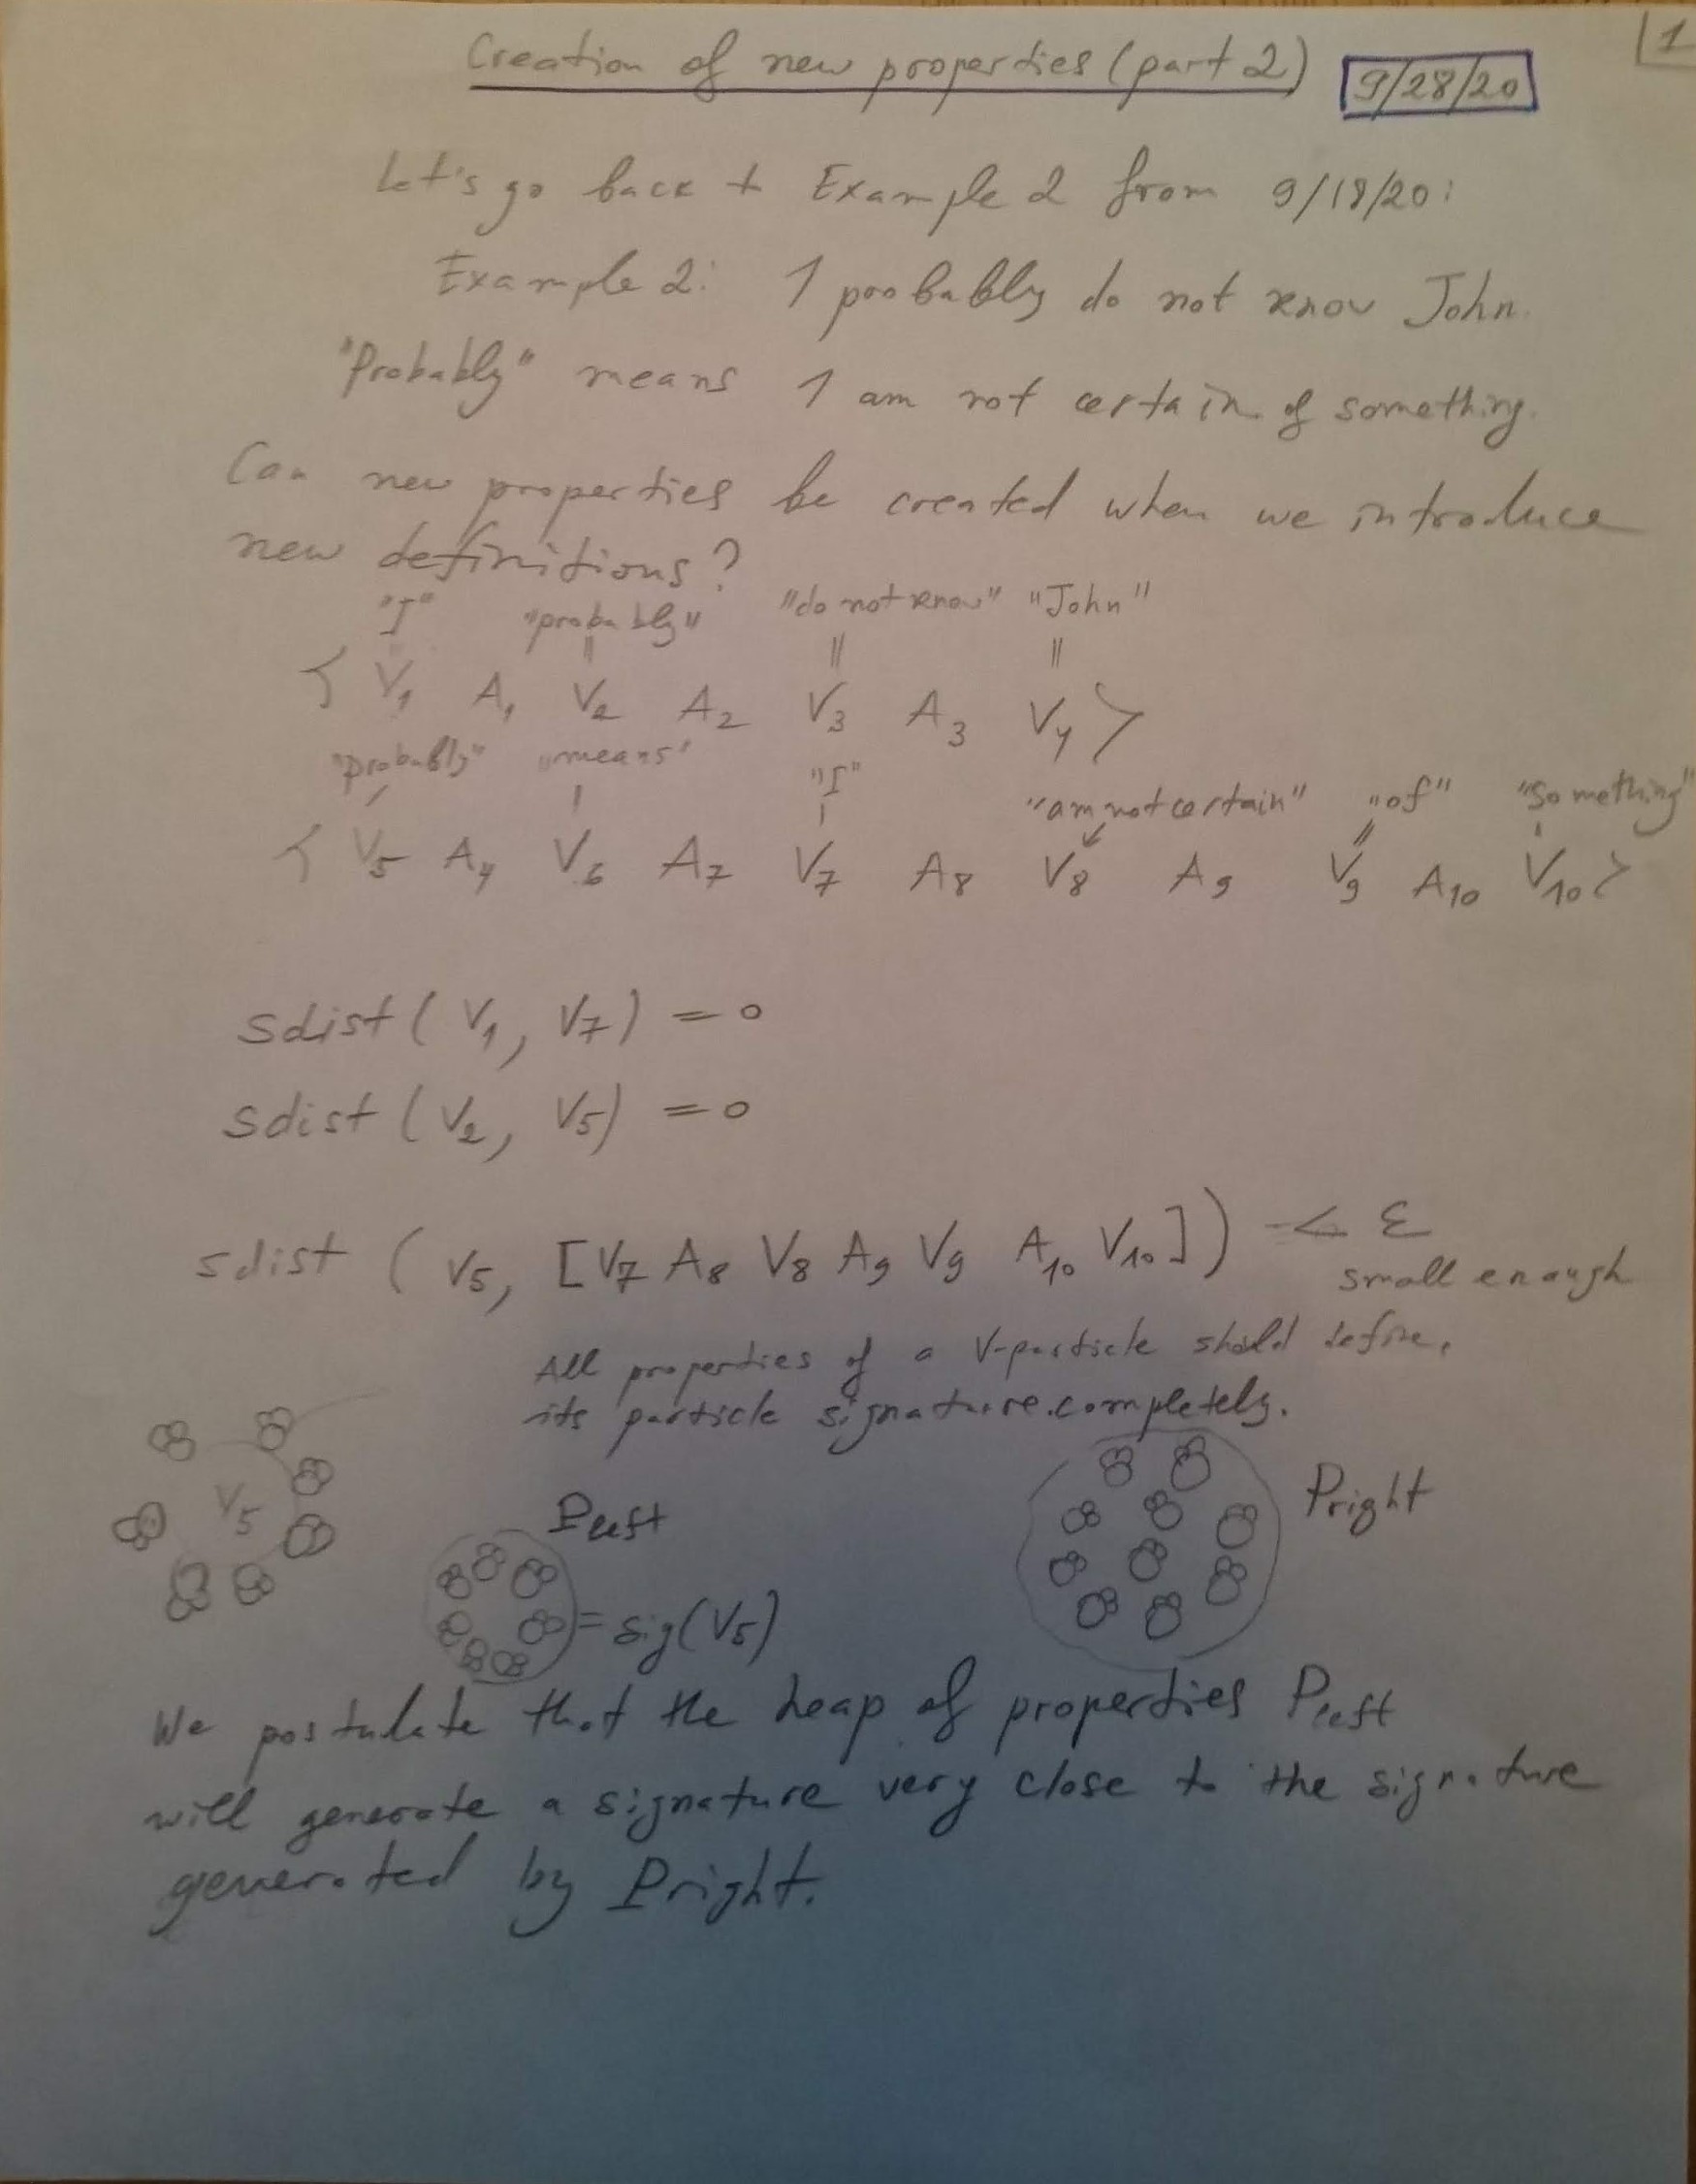 1
Creation of new properties (part 2) 9/28/20
Let's go back to Example 2 from 9/19/20:
Example 2: I probably do not know John.
"Probably" means I am not certain of something.
Can new properties be created when we introduce
new definitions?
"I" "probably" "do not know" "John"
< V1 A1 V2 A2 V3 A3 V4 >
"probably" "means" "I" "am not certain" "of" "something"
< V5 A4 V6 A7 V7 A8 V8 A9 V9 A10 V10 >
sdist ( V1, V7 ) = 0
sdist ( V2, V5 ) = 0
sdist ( V5, [ V7 A8 V8 A9 V9 A10 V10 ] ) < ε
small enough
All properties of a V-particle should define
its particle signature completely.
V5
Pleft
= sig(V5)
Pright
We postulate that the heap of properties Pleft
will generate a signature very close to the signature
generated by Pright.